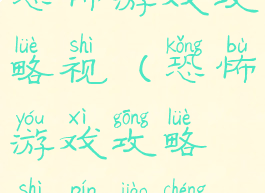 恐怖游戏攻
lüè shì kǒng bù
略视（恐怖
yóu xì gōng lüè
游戏攻略
shì pín jiào chéng